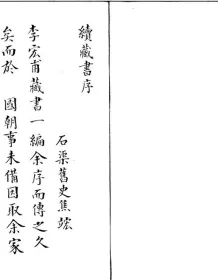 續藏書序
石渠舊史焦竑
李宏甫藏書一編余序而傳之久
矣而於 國朝事未備因取余家